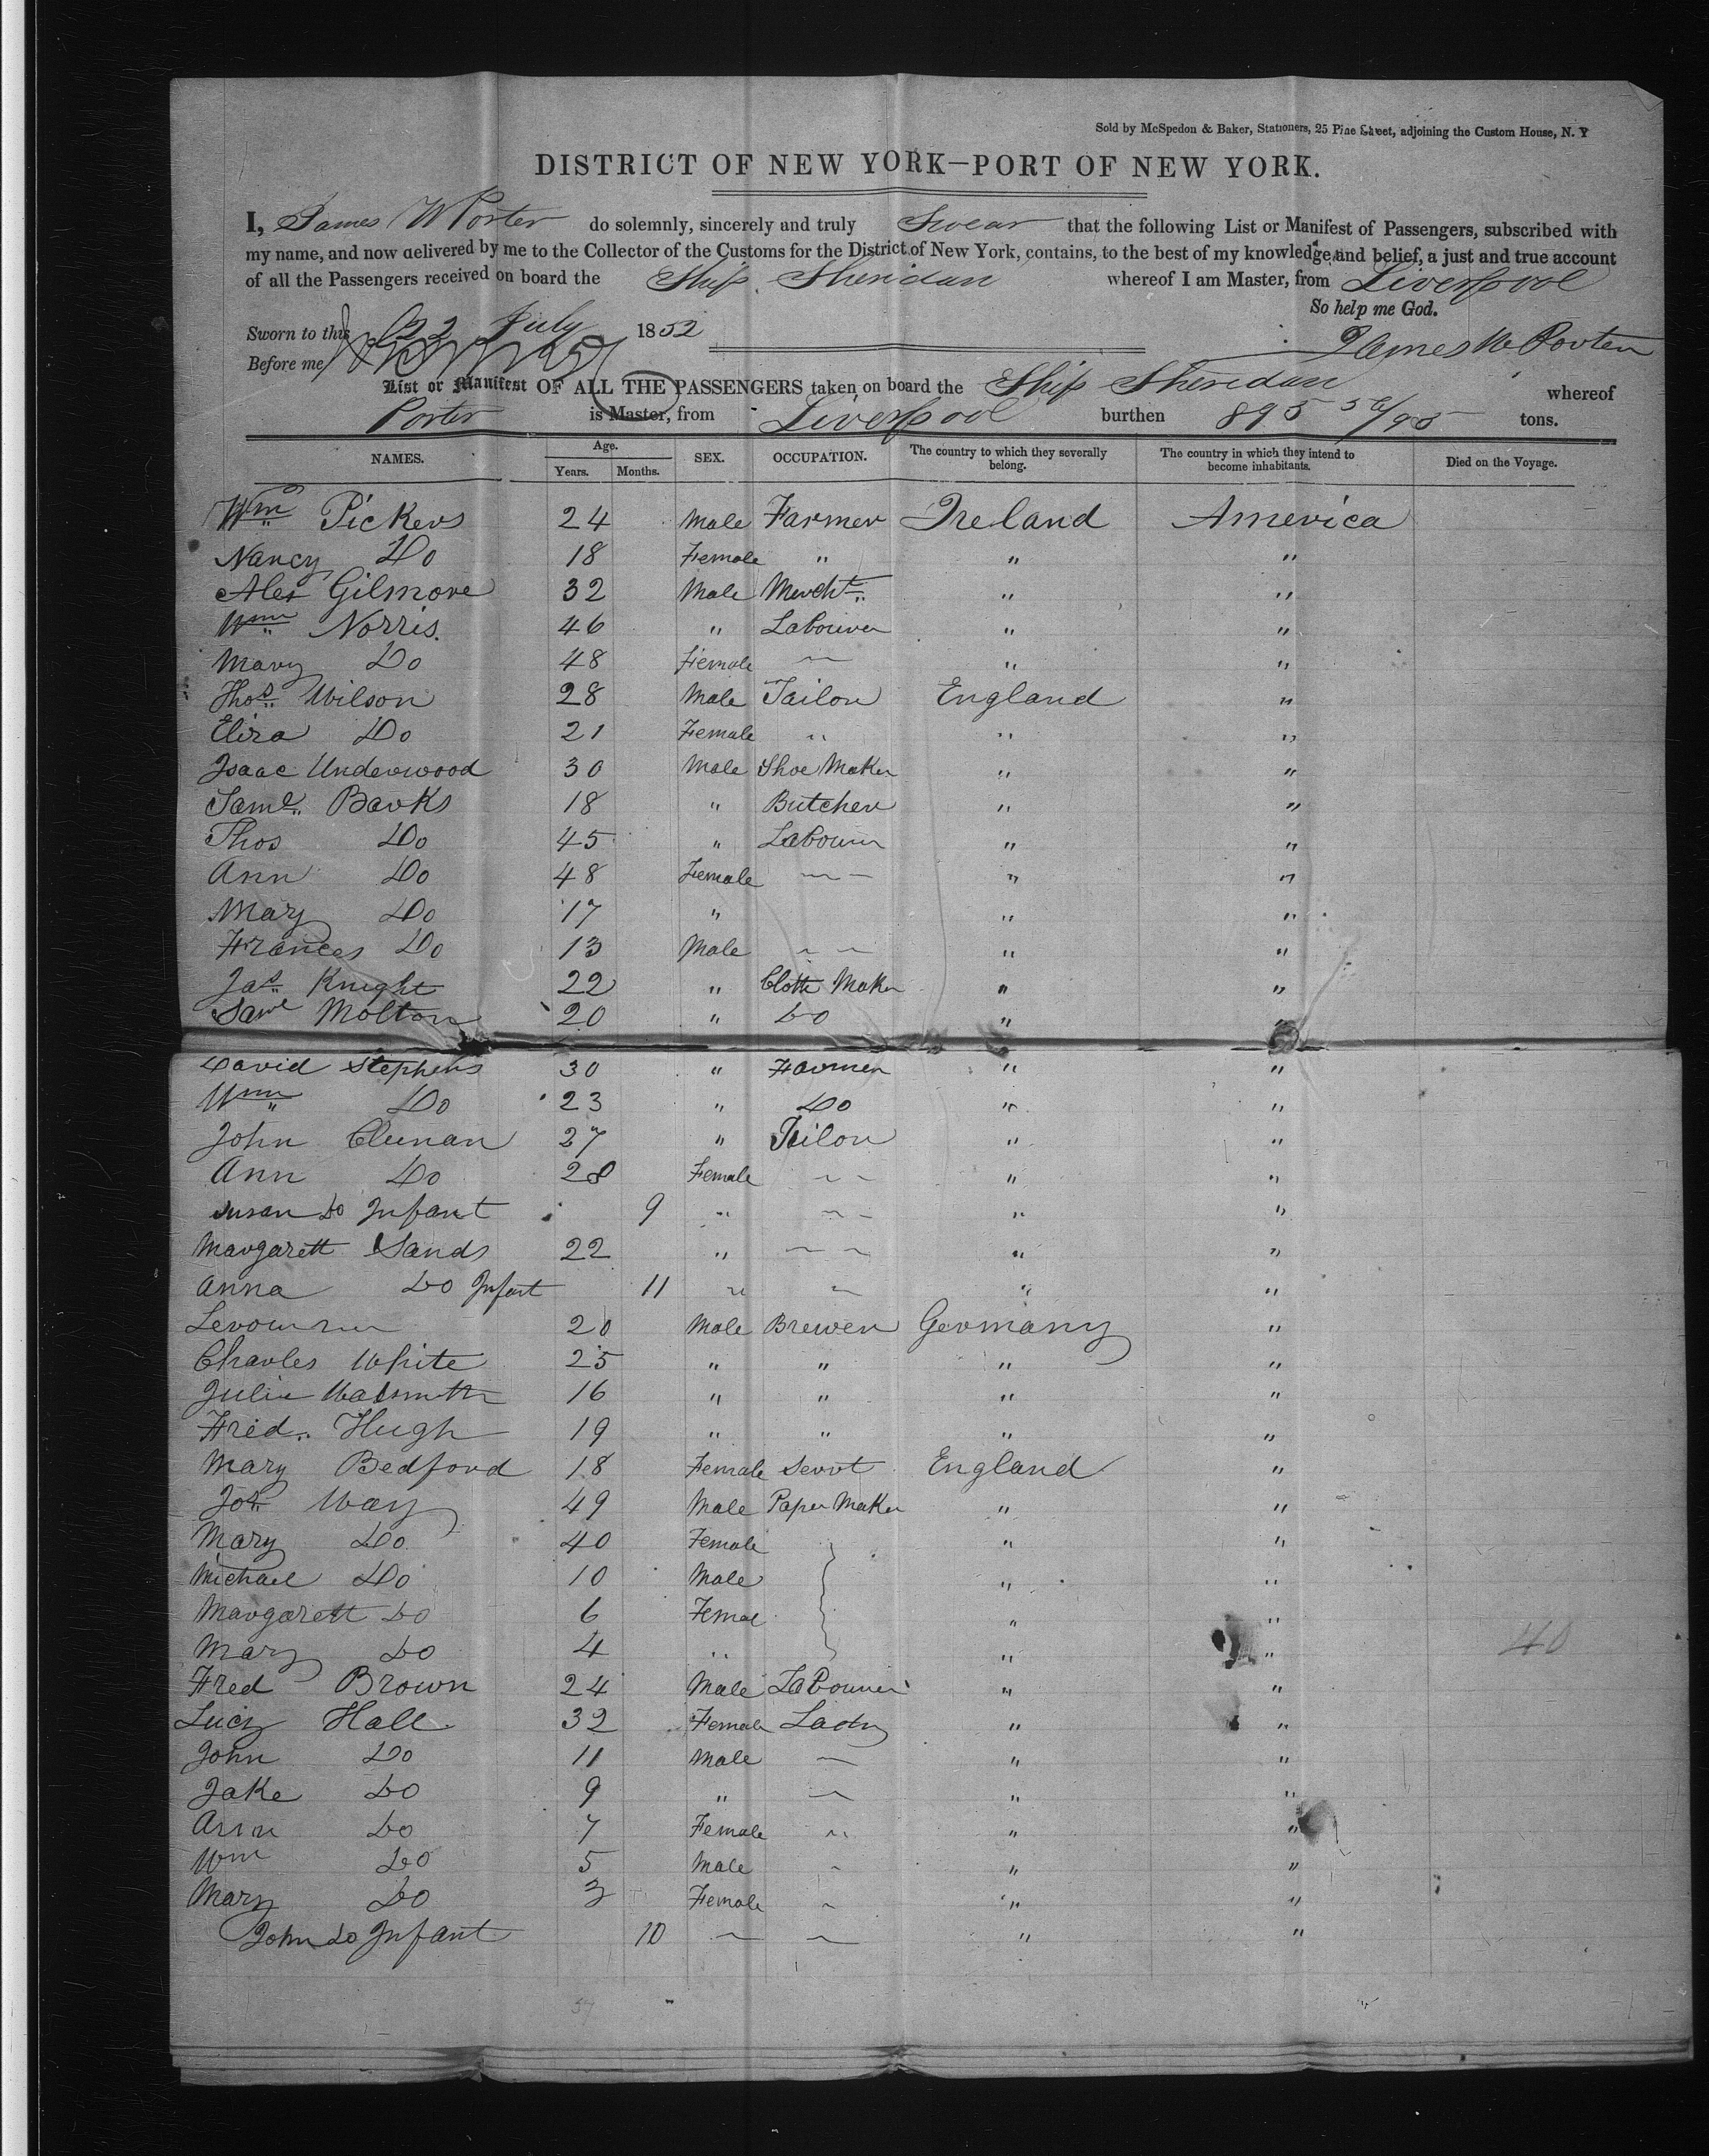 Sold by McSpedon & Baker, Stationers, 25 Pine Street, adjoining the Custom House, N. Y
DISTRICT OF NEW YORK—PORT OF NEW YORK.
I, James W Porter do solemnly, sincerely and truly Swear that the following List or Manifest of Passengers, subscribed with
my name, and now delivered by me to the Collector of the Customs for the District of New York, contains, to the best of my knowledge and belief, a just and true account
of all the Passengers received on board the Ship Sheridan whereof I am Master, from Liverpool
So help me God.
Sworn to this 22 July 1852
James W Porter
Before me
List or Manifest OF ALL THE PASSENGERS taken on board the Ship Sheridan whereof
Porter is Master, from Liverpool burthen 895 56/95 tons.
NAMES. Age. Years. Months. SEX. OCCUPATION. The country to which they severally belong. The country in which they intend to become inhabitants. Died on the Voyage.
Wm Pickers 24 Male Farmer Ireland America
Nancy Do 18 Female " " "
Alex Gilmore 32 Male Mercht " "
Wm Norris. 46 " Labourer " "
Mary Do 48 Female — " "
Thos Wilson 28 Male Tailor England "
Eliza Do 21 Female " " "
Isaac Underwood 30 Male Shoe Maker " "
Saml Banks 18 " Butcher " "
Thos Do 45 " Labourer " "
Ann Do 48 Female — — " "
Mary Do 17 " " "
Frances Do 13 Male — — " "
Jas Knight 22 " Cloth Maker " "
Saml Molton 20 " Do " "
David Stephens 30 " Farmer " "
Wm Do 23 " Do " "
John Clunan 27 " Tailor " "
Ann Do 28 Female — — " "
Susan Do Infant 9 " — — " "
Margarett Sands 22 " — — " "
Anna Do Infant 11 " — " "
20 Male Brewer Germany "
Charles White 25 " " " "
Julius 16 " " " "
Fred. Hugh 19 " " " "
Mary Bedford 18 Female Servt England "
Jos Way 49 Male Paper Maker " "
Mary Do 40 Female " "
Michael Do 10 Male " "
Margarett Do 6 Femal " "
Mary Do 4 " " " 40
Fred Brown 24 Male Labourer " "
Lucy Hall 32 Female Lady " "
John Do 11 Male — " "
Jake Do 9 " — " "
Ann Do 7 Female " " "
Wm Do 5 Male - " "
Mary Do 3 Female ~ " "
John Do Infant 10 — — " "